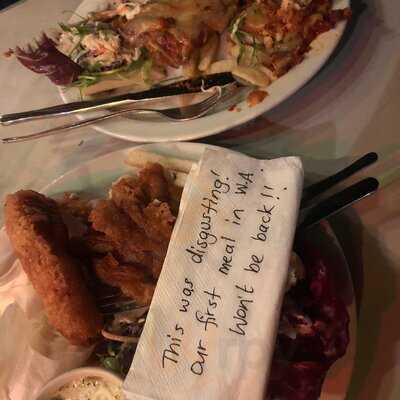 This was disgusting!
Our first meal in WA.
Won't be back!!